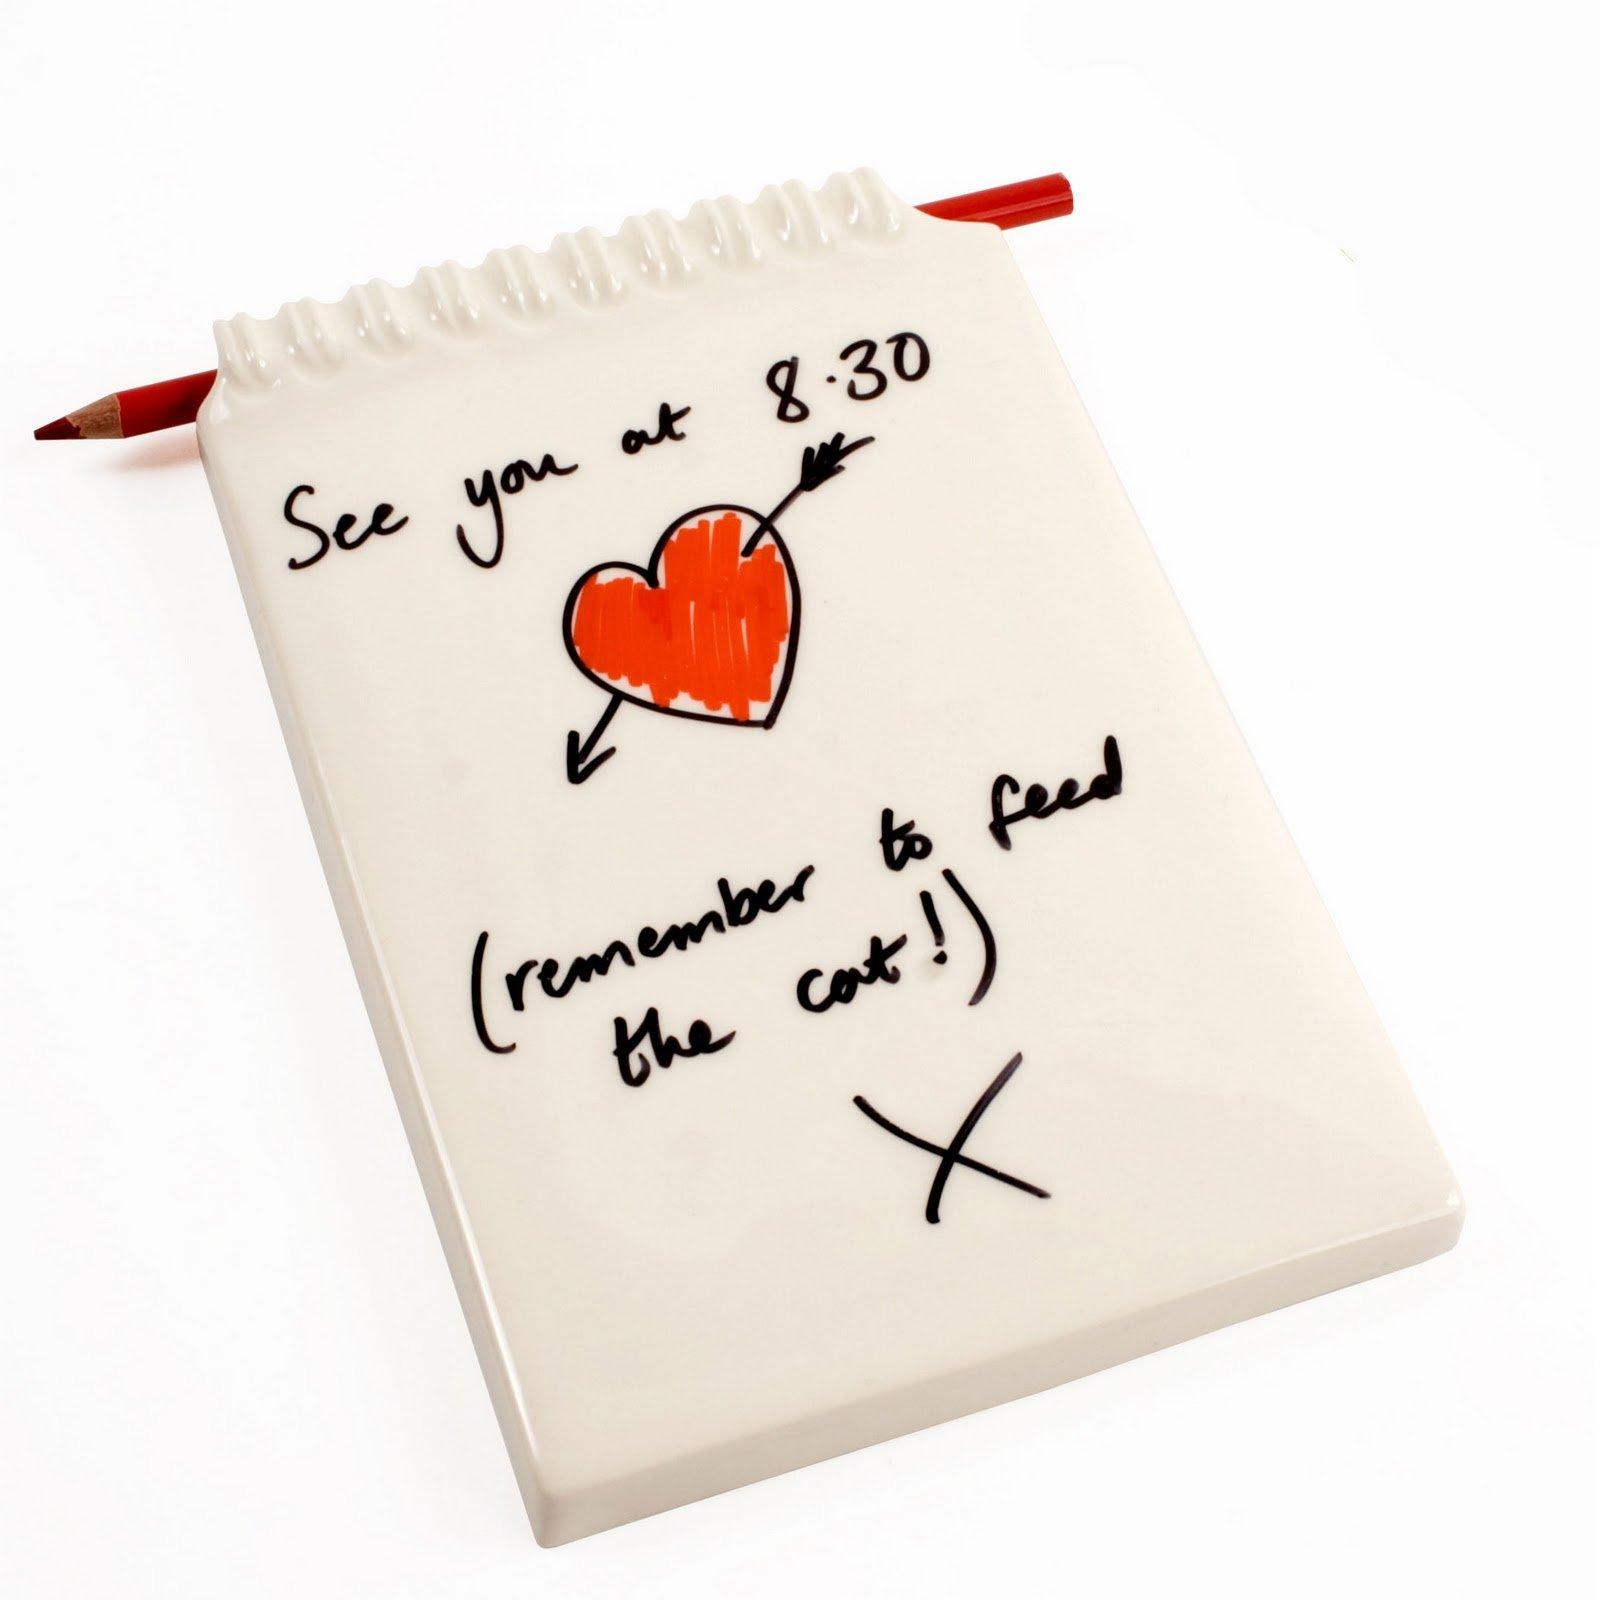 See you at 8.30
(remember to feed
the cat!)
X